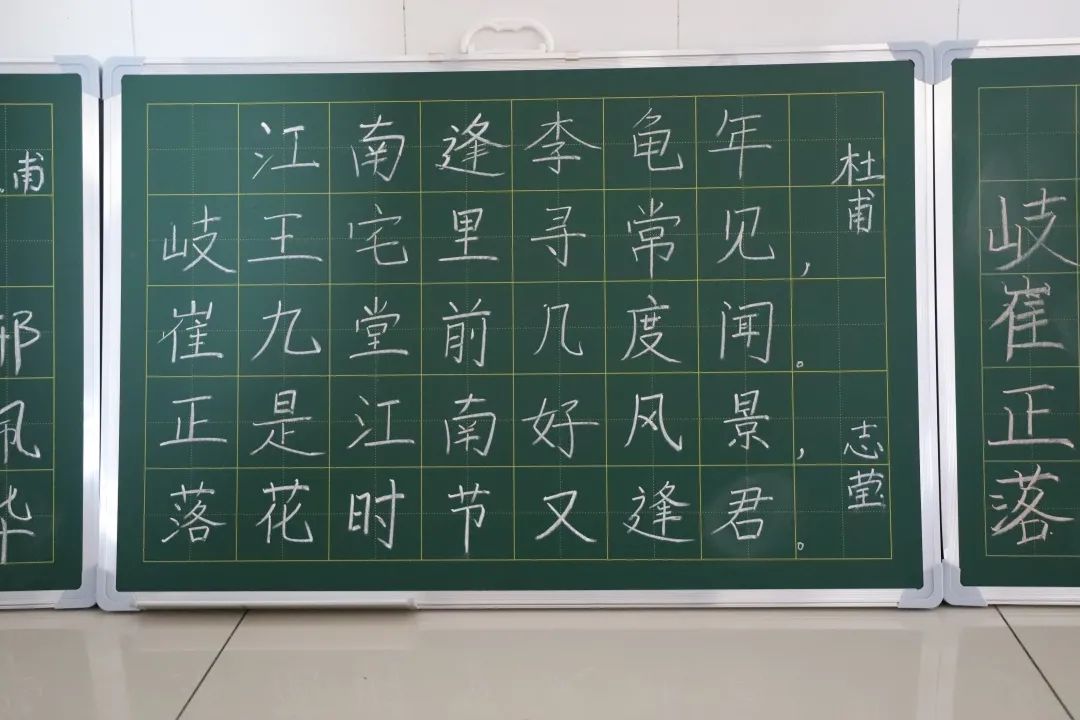 江南逢李龟年
杜甫
岐王宅里寻常见，
崔九堂前几度闻。
正是江南好风景，
落花时节又逢君。
志莹
甫
岐
崔
正
落